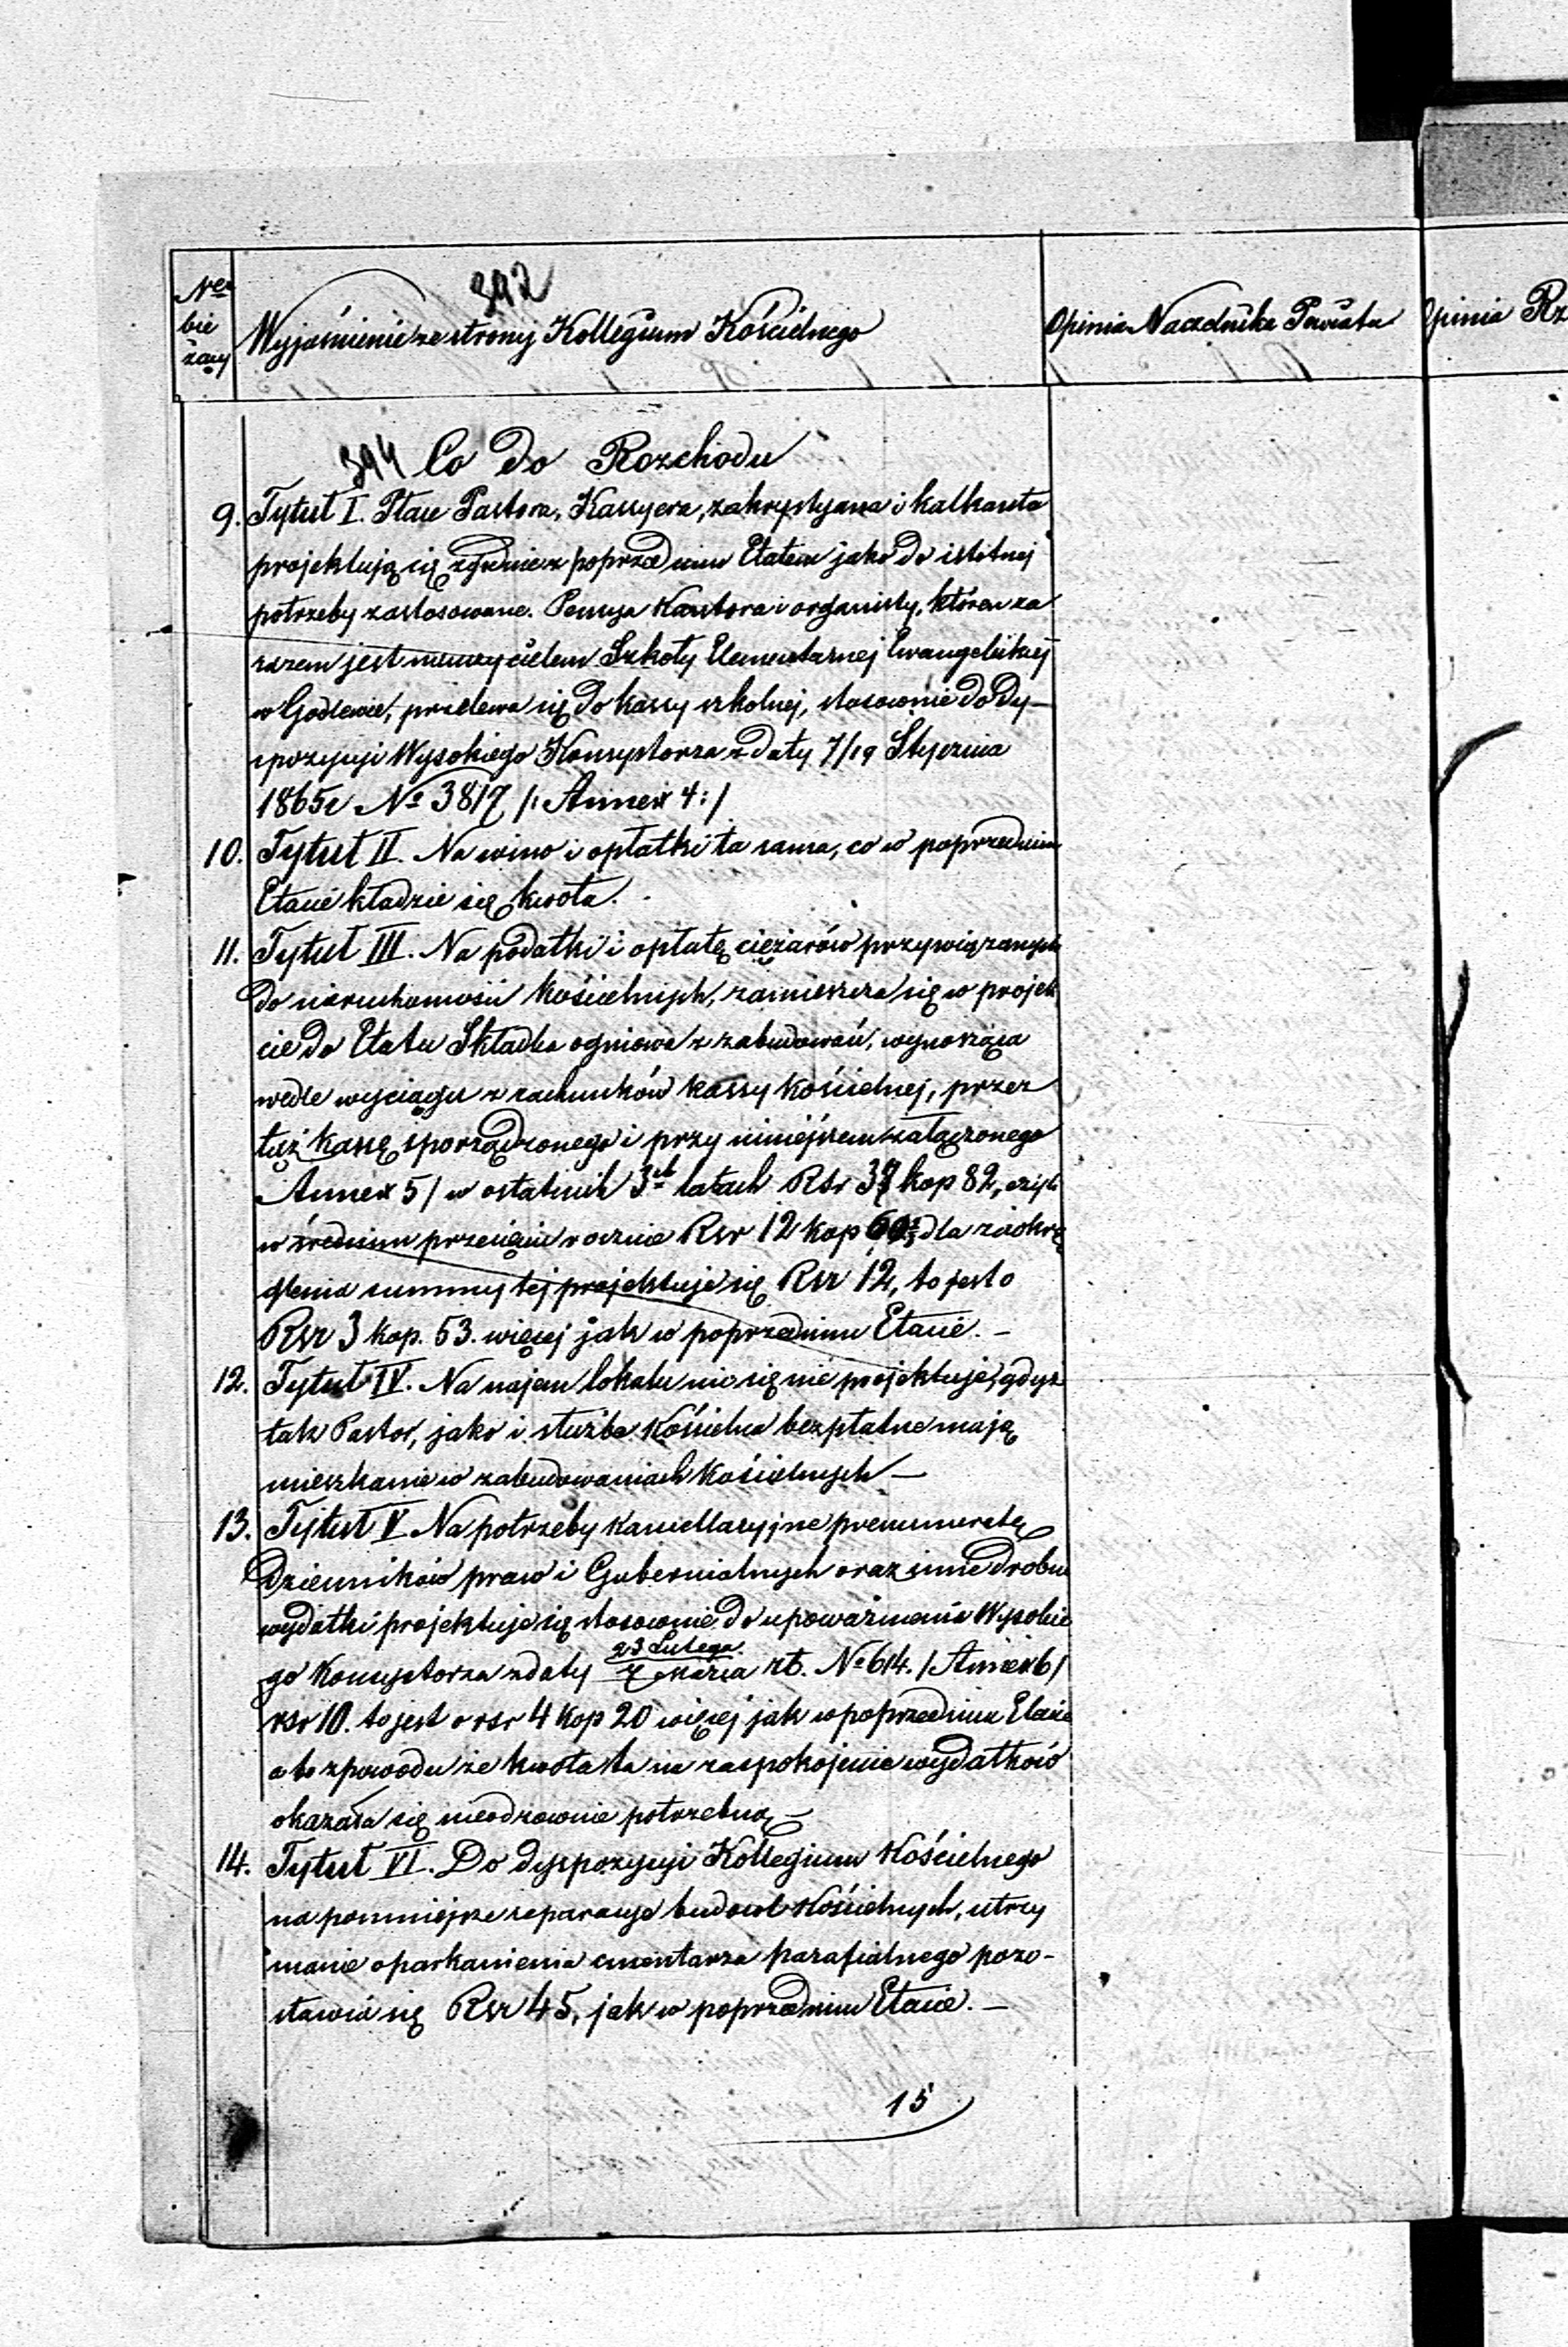 392
Ner
bie
żący
Wyjaśnienie ze strony Kollegium Kościelnego
Opinia Naczelnika Powiatu
Opinia Rz
394 Co do Rozchodu
9. Tytuł I. Płace Pastora, Kassyera, zakrystyana i kalkanta
projektują się zgodnie z poprzednim Etatem jako do istotnej
potrzeby zastosowane. Pensya Kantora i organisty, któren za
razem jest nauczycielem Szkoły Elementarnej Ewangelickiej
w Godlewie, przelewa się do kassy szkolnej, stosownie do Dy-
spozycyi Wysokiego Konsystorza z daty 7/19 Stycznia
1865r No 3817 /: Annex 4:/
10. Tytuł II. Na wino i opłatki ta sama, co w poprzednim
Etacie kładzie się kwota.
11. Tytuł III. Na podatki i opłatę ciężarów przywiązanych
do nieruchomości Kościelnych, zamieszcza się w projek
cie do Etatu Składka ogniowa z zabudowań, wynosząca
wedle wyciągu z rachunków kassy Kościelnej, przez
tęż kassę sporządzonego i przy niniejszem załączonego
Annex 5/ w ostatnich 3ch latach Rsr 37 kop 82, czyli
w średnim przecięciu rocznie Rsr 12 kop dla zaokrą
glenia summy tej projektuje się Rsr 12, to jest o
Rsr 3 kop. 53. więcej jak w poprzednim Etacie. –
12. Tytuł IV. Na najem lokalu nic się nie projektuje, gdyż
tak Pastor, jako i służba Kościelna bezpłatne mają
mieszkanie w zabudowaniach Kościelnych –
13. Tytuł V. Na potrzeby kancellaryjne prenumeratę
Dzienników praw i Gubernialnych oraz inne drobne
wydatki projektuje się stosownie do upoważnienia Wysokie
go Konsystorza z daty 23 Lutego / 7 Marca rb. No 614. /Annex 6/
rsr 10. to jest o rsr 4 kop 20 więcej jak w poprzednim Etacie
a to z powodu że kwota ta na zaspokojenie wydatków
okazała się nieodzownie potrzebną –
14. Tytuł VI. Do dyspozycyi Kollegium Kościelnego
na pomniejsze reparacye budowl Kościelnych, utrzy
manie oparkanienia cmentarza parafialnego pozo-
stawia się Rsr 45, jak w poprzednim Etacie. –
15